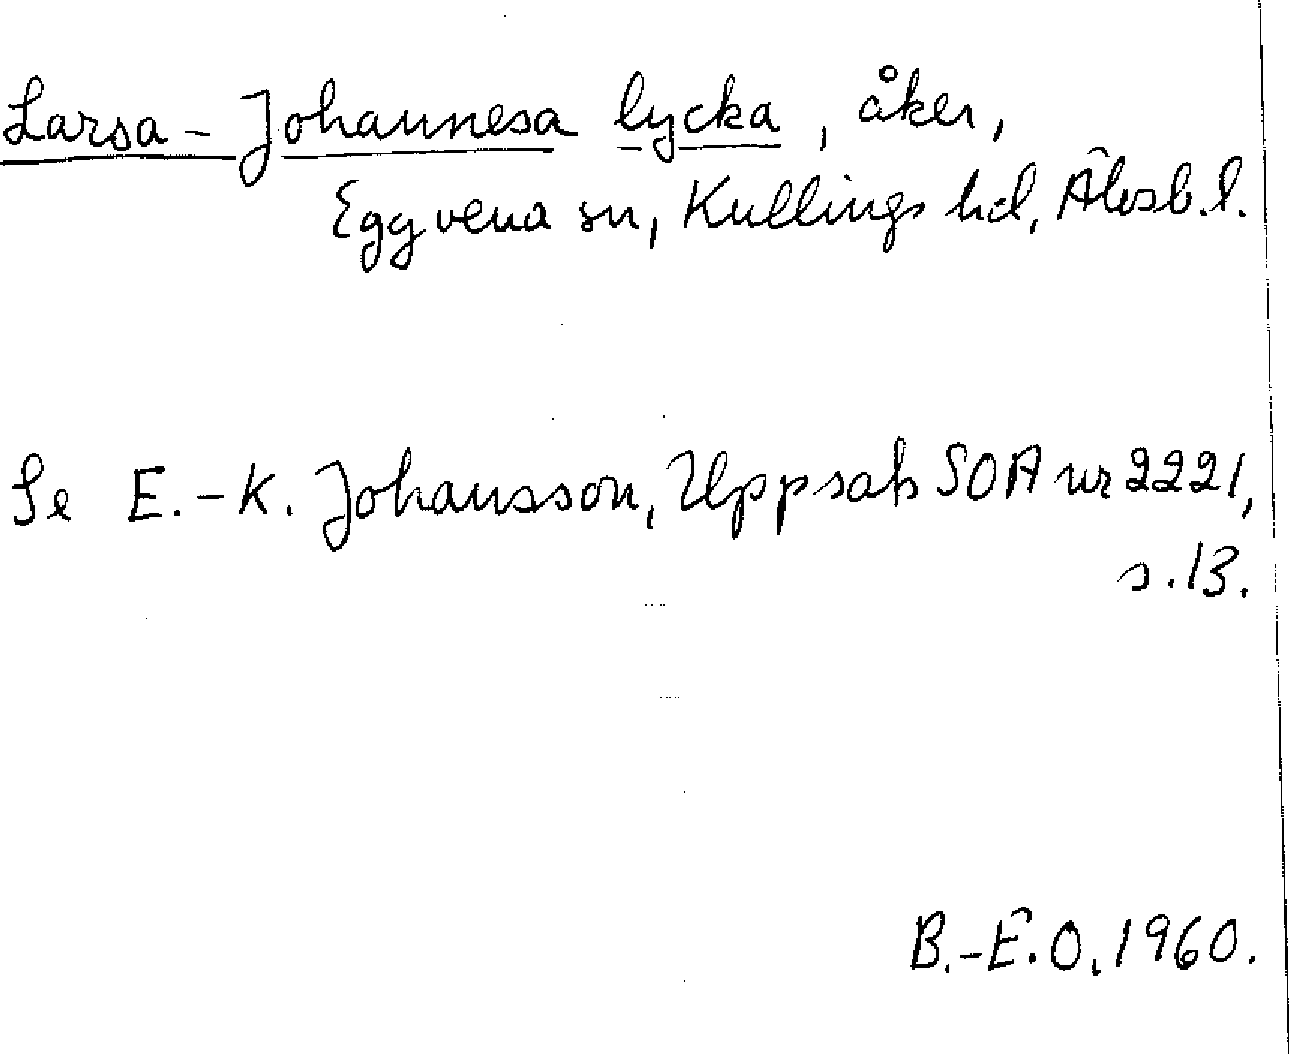 Larsa-Johannesa lycka, åker,
Eggvena sn, Kullings hd, Älvsb. l.
Se E.-K. Johansson, Uppsala SOA nr 2221,
s. 13.
B.-E. O. 1960.